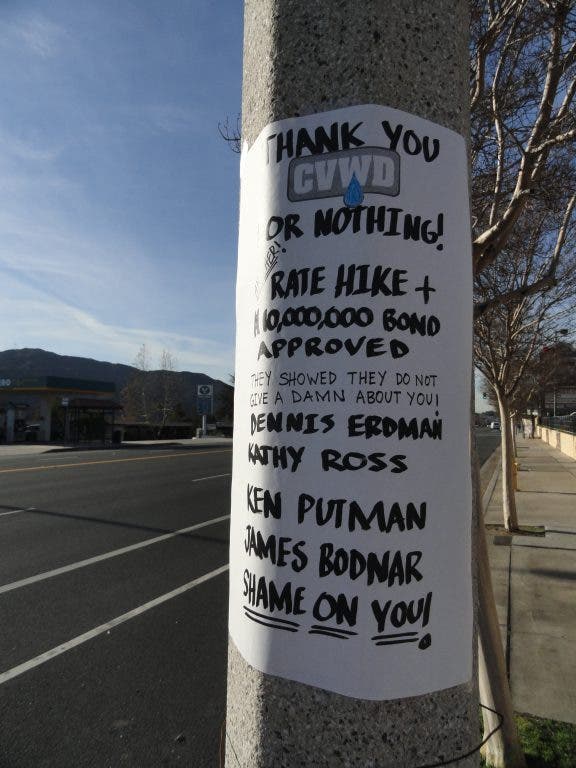 THANK YOU
CVWD
OR NOTHING!
RATE HIKE +
10,000,000 BOND
APPROVED
THEY SHOWED THEY DO NOT
GIVE A DAMN ABOUT YOU!
DENNIS ERDMAN
KATHY ROSS
KEN PUTMAN
JAMES BODNAR
SHAME ON YOU!